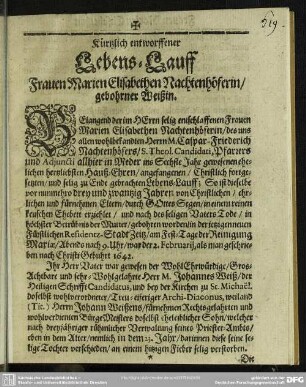 519.
Kürtzlich entworffener
Lebens-Lauff
Frauen Marien Elisabethen Nachtenhöferin/
gebohrner Weißin.
BElangend der im HErrn selig entschlaffenen Frauen
Marien Elisabethen Nachtenhöferin/ des uns
allen wohlbekandten Herrn M. Caspar-Friederich
Nachtenhöfers/ S. Theol. Candidati, Pfarrers
und Adjuncti allhier in Meder ins Sechste Jahr gewesenen ehe-
lichen hertzliebsten Hauß-Ehren/ angefangenen/ Christlich fortge-
setzten/ und selig zu Ende gebrachten Lebens-Lauff; So ist dieselbe
vor nunmehro drey und zwantzig Jahren/ von Christlichen/ ehr-
lichen und fürnehmen Eltern/ durch GOttes Segen/ in einem reinen
keuschen Ehebett erziehlet/ und nach des seligen Vaters Tode/ in
höchster Betrübnis der Mutter/ gebohren worden/ in der
Fürstlichen Residentz-Stadt Zeitz/ am Fest-Tage der Reinigung
Mariæ/ Abends nach 9. Uhr/ war der 2. Februarij, als man geschrie-
ben nach Christi Gebuhrt 1642.
Ihr Herr Vater war gewesen der WohlEhrwürdige/ Groß-
Achtbare und sehr-Wohlgelahrte Herr M. Johannes Weiß/ der
Heiligen Schrifft Candidatus, und bey der Kirchen zu St. Michaël.
daselbst wohlverordneter/ Treu-eiferiger Archi-Diaconus, weiland
(Tit.) Herrn Johann fürnehmen Rechtsgelahrten und
wohlverdienten BürgeMeisters daselbst ehrleiblicher Sohn/ welcher
nach dreyjähriger rühmlicher Verwaltung seines Priester-Ambts/
eben in dem Alter/ nemlich in dem 23. Jahr/ darinnen diese seine se-
lige Tochter verschieden/ an einem hitzigen Fieber selig verstorben.
Die